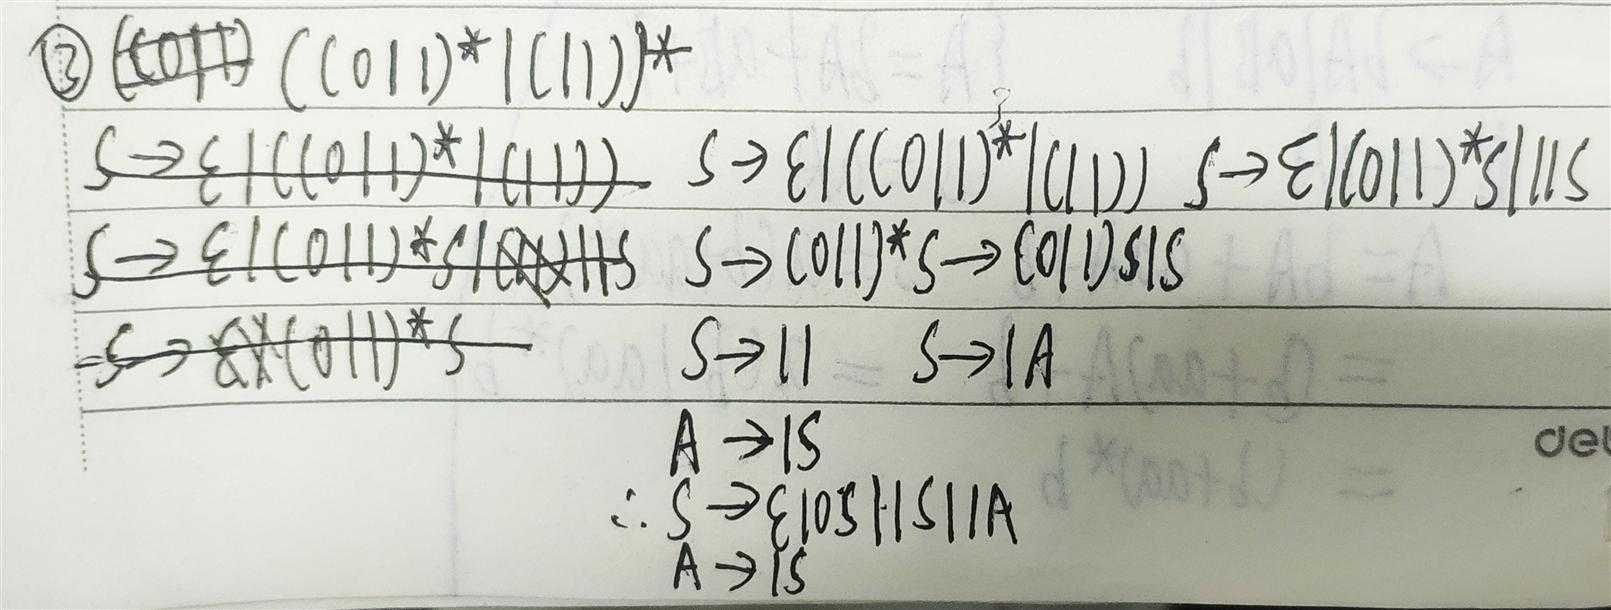 ② ((0|1)*|(11))*
S→ε|((0|1)*|(11)) S→ε|((0|1)*|(11)) S→ε|(0|1)*S|11S
S→ε|(0|1)*S|11S S→(0|1)*S→(0|1)S|S
S→(0|1)*S S→11 S→1A
A→1S
∴S→ε|0S|1S|1A
A→1S
del